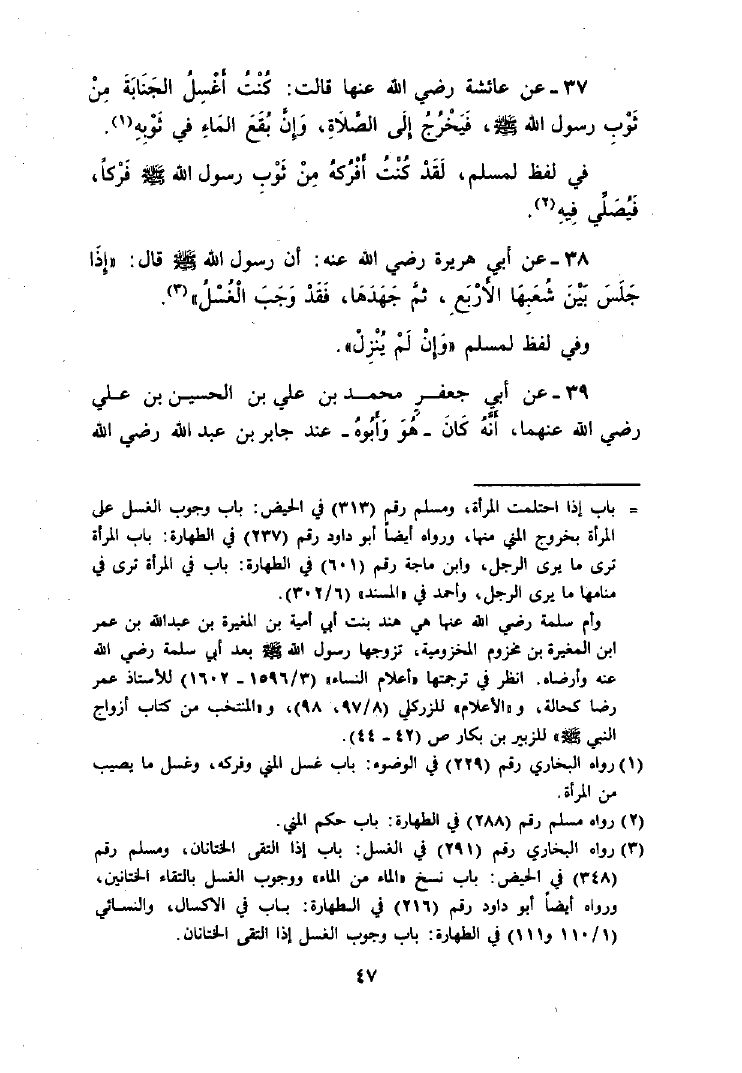 ٣٧ - عن عائشة رضي الله عنها قالت: كُنْتُ أَغْسِلُ الجَنَابَةَ مِنْ
ثَوْبِ رسول الله ﷺ، فَيَخْرُجُ إِلَى الصَّلَاةِ، وَإِنَّ بُقَعَ المَاءِ في ثَوْبِهِ(١).
في لفظ لمسلم، لَقَدْ كُنْتُ أَفْرُكُهُ مِنْ ثَوْبِ رسول الله ﷺ فَرْكاً،
فَيُصَلِّي فِيهِ(٢).
٣٨ - عن أبي هريرة رضي الله عنه: أن رسول الله ﷺ قال: «إِذَا
جَلَسَ بَيْنَ شُعَبِهَا الأَرْبَعِ، ثمَّ جَهَدَهَا، فَقَدْ وَجَبَ الْغُسْلُ»(٣).
وفي لفظ لمسلم «وَإِنْ لَمْ يُنْزِلْ».
٣٩ - عن أبي جعفرٍ محمد بن علي بن الحسين بن علي
رضي الله عنهما، أَنَّهُ كَانَ - هُوَ وَأَبُوهُ - عند جابر بن عبد الله رضي الله
= باب إذا احتلمت المرأة، ومسلم رقم (٣١٣) في الحيض: باب وجوب الغسل على
المرأة بخروج المني منها، ورواه أيضاً أبو داود رقم (٢٣٧) في الطهارة: باب المرأة
ترى ما يرى الرجل، وابن ماجة رقم (٦٠١) في الطهارة: باب في المرأة ترى في
منامها ما يرى الرجل، وأحمد في «المسند» (٣٠٢/٦).
وأم سلمة رضي الله عنها هي هند بنت أبي أمية بن المغيرة بن عبدالله بن عمر
ابن المغيرة بن مخزوم المخزومية، تزوجها رسول الله ﷺ بعد أبي سلمة رضي الله
عنه وأرضاه. انظر في ترجمتها «أعلام النساء» (١٥٩٦/٣ - ١٦٠٢) للأستاذ عمر
رضا كحالة، و«الأعلام» للزركلي (٩٧/٨، ٩٨)، و«المنتخب من كتاب أزواج
النبي ﷺ» للزبير بن بكار ص (٤٢ - ٤٤).
(١) رواه البخاري رقم (٢٢٩) في الوضوء: باب غسل المني وفركه، وغسل ما يصيب
من المرأة.
(٢) رواه مسلم رقم (٢٨٨) في الطهارة: باب حكم المني.
(٣) رواه البخاري رقم (٢٩١) في الغسل: باب إذا التقى الختانان، ومسلم رقم
(٣٤٨) في الحيض: باب نسخ «الماء من الماء» ووجوب الغسل بالتقاء الختانين،
ورواه أيضاً أبو داود رقم (٢١٦) في الطهارة: باب في الاكسال، والنسائي
(١١٠/١ و١١١) في الطهارة: باب وجوب الغسل إذا التقى الختانان.
٤٧